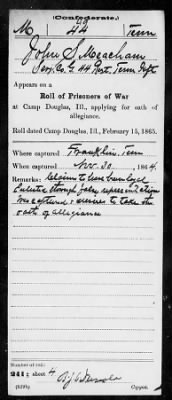 (Confederate.)
M 44 Tenn
John S. Meacham
Co. G 44 Regt. Tenn
Appears on a
Roll of Prisoners of War
at Camp Douglas, Ill., applying for oath of
allegiance.
Roll dated Camp Douglas, Ill., February 15, 1865.
Where captured Franklin, Tenn
When captured Nov. 30, 1864
Remarks: Claims to have been loyal
Enlisted through false representation
was captured desires to take the
oath of allegiance
Number of roll:
241; sheet 4
Copyist.